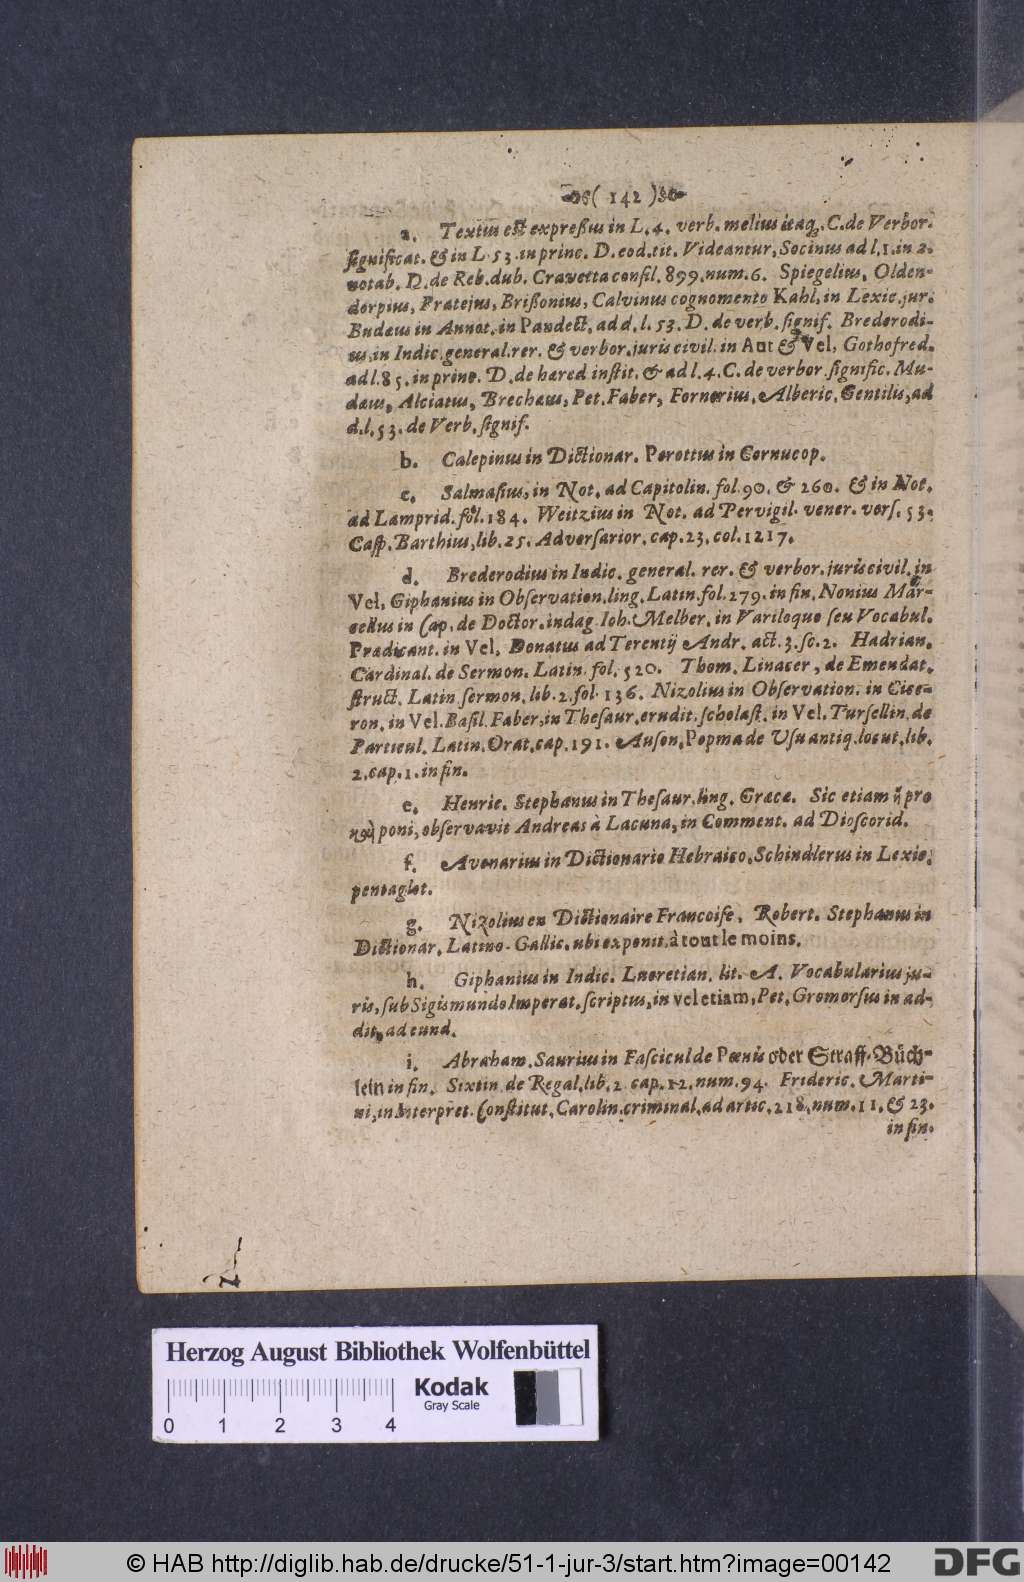 ( 142 )
a. Textus est expreßus in L. 4. verb. melius itaq. C. de Verbor.
significat. & in L. 53. in princ. D. eod. tit. Videantur, Socinus ad l. 1. in 2.
notab. D. de Reb. dub. Cravetta consil. 899. num. 6. Spiegelius, Olden-
dorpius, Pratejus, Brißonius, Calvinus cognomento Kahl, in Lexic. jur.
Budæus in Annot. in Pandect. ad d. l. 53. D. de verb. signif. Brederodi-
us, in Indic. general. rer. & verbor. juris civil. in Aut & Vel, Gothofred.
ad l. 85. in princ. D. de hæred instit. & ad l. 4. C. de verbor. signific. Mu-
dæus, Alciatus, Brechæus, Pet. Faber, Fornerius, Alberic. Gentilis, ad
d. l. 53. de Verb. signif.
b. Calepinus in Dictionar. Perottus in Cornucop.
c. Salmasius, in Not. ad Capitolin. fol. 90. & 260. & in Not.
ad Lamprid. fol. 184. Weitzius in Not. ad Pervigil. vener. vers. 53.
Casp. Barthius, lib. 25. Adversarior. cap. 23. col. 1217.
d. Brederodius in Indic. general. rer. & verbor. juris civil. in
Vel, Giphanius in Observation. ling. Latin. fol. 279. in fin. Nonius Mar-
cellus in Cap. de Doctor. indag. Ioh. Melber, in Variloquo seu Vocabul.
Prædicant. in Vel. Donatus ad Terentij Andr. act. 3. sc. 2. Hadrian.
Cardinal. de Sermon. Latin. fol. 520. Thom. Linacer, de Emendat.
struct. Latin. sermon. lib. 2. fol. 136. Nizolius in Observation. in Cice-
ron. in Vel. Basil. Faber, in Thesaur. erudit. scholast. in Vel. Tursellin. de
Particul. Latin. Orat. cap. 191. Auson. Popma de Usu antiq. locut. lib.
2. cap. 1. in fin.
e. Henric. Stephanus in Thesaur. ling. Græcæ. Sic etiam ἢ pro
καὶ poni, observavit Andreas à Lacuna, in Comment. ad Dioscorid.
f. Avenarius in Dictionario Hebraico, Schindlerus in Lexic.
pentaglot.
g. Nizolius en Dictionaire Francoise, Robert. Stephanus in
Dictionar. Latino-Gallic. ubi exponit, à tout le moins.
h. Giphanius in Indic. Lucretian. lit. A. Vocabularius ju-
ris, sub Sigismundo Imperat. scriptus, in vel etiam, Pet. Gromorsus in ad-
dit. ad eund.
i. Abraham. Saurius in Fascicul de Pœnis oder Straff-Büch-
lein in fin. Sixtin. de Regal. lib. 2. cap. 12. num. 94. Frideric. Marti-
ni, in Interpret. Constitut. Carolin. criminal. ad artic. 218. num. 11. & 23.
in fin.
Herzog August Bibliothek Wolfenbüttel
Kodak
Gray Scale
0 1 2 3 4
© HAB http://diglib.hab.de/drucke/51-1-jur-3/start.htm?image=00142
DFG